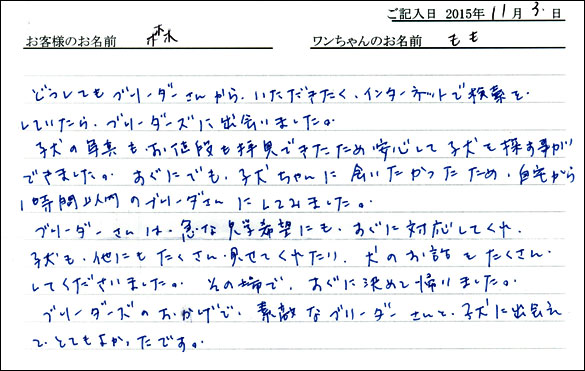 ご記入日 2015年 11月 3日
お客様のお名前 森 ワンちゃんのお名前 もも
どうしてもブリーダーさんから、いただきたく、インターネットで検索を
していたら、ブリーダーズに出会いました。
子犬の写真もお値段も拝見できたため安心して子犬を探す事が
できました。すぐにでも、子犬ちゃんに会いたかったため、自宅から
1時間以内のブリーダーさんにしてみました。
ブリーダーさんは、急な見学希望にも、すぐに対応してくれ、
子犬も、他にもたくさん見せてくれたり、犬のお話をたくさん
してくださいました。その場で、すぐに決めて帰りました。
ブリーダーズのおかげで、素敵なブリーダーさんと、子犬に出会え
て、とてもよかったです。